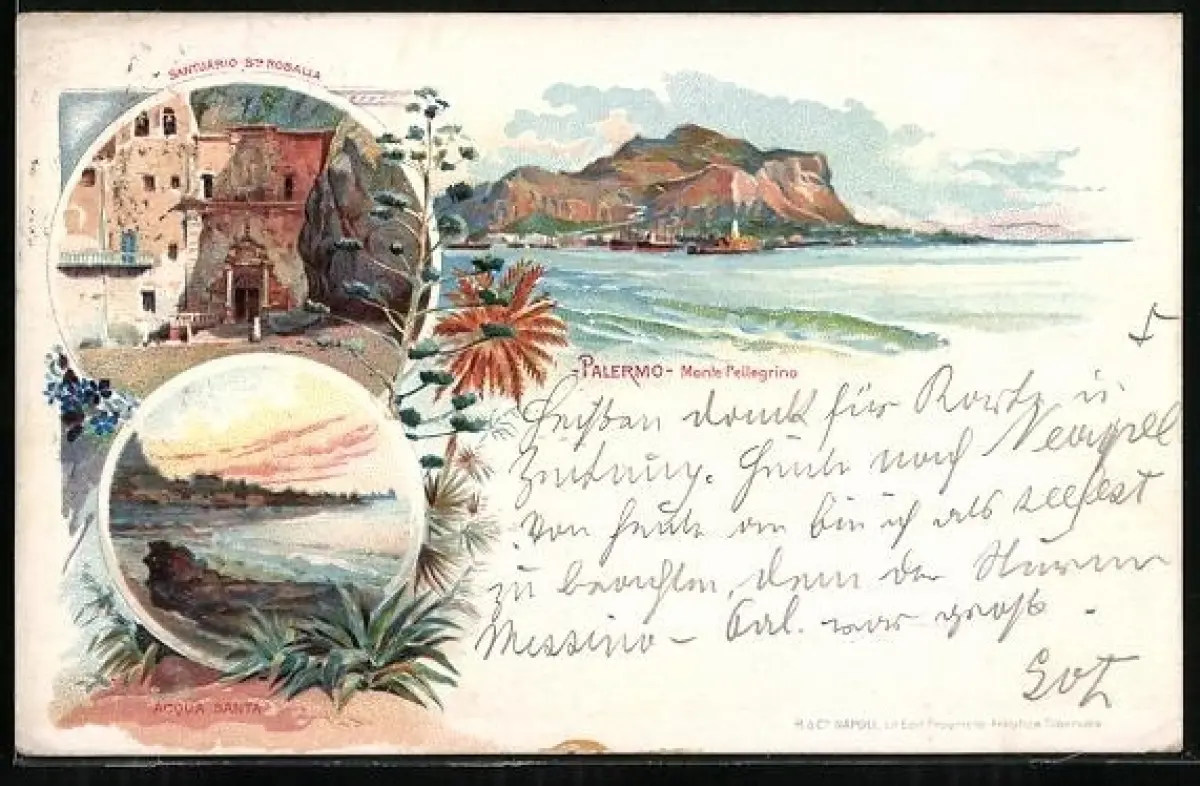 SANTUARIO Sta ROSALIA
-PALERMO- Monte Pellegrino
Heißen Dank für Karte u
Zeitung. Heute nach Neapel
Von heute an bin ich als seefest
zu betrachten, denn der Sturm
Messina – Cal. war groß.
ACQUA SANTA
NAPOLI